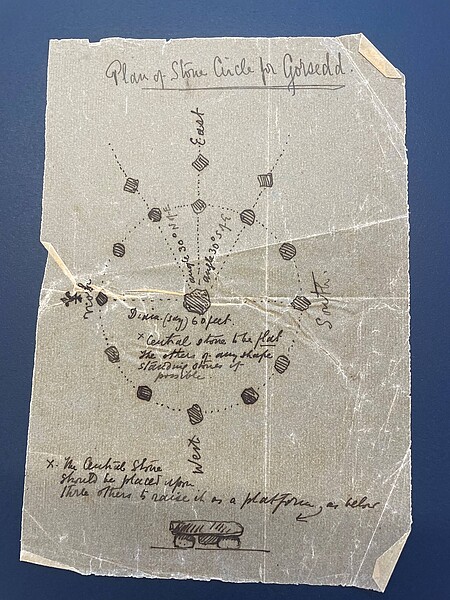 Plan of Stone Circle for Gorsedd.
East
angle 30° N of E
angle 30° S of E
North
South.
Diam. (say) 60 feet.
x Central stone to be flat
The others of any shape
standing stones if
possible
West
x. The Central Stone
should be placed upon
three others to raise it as a platform, as below